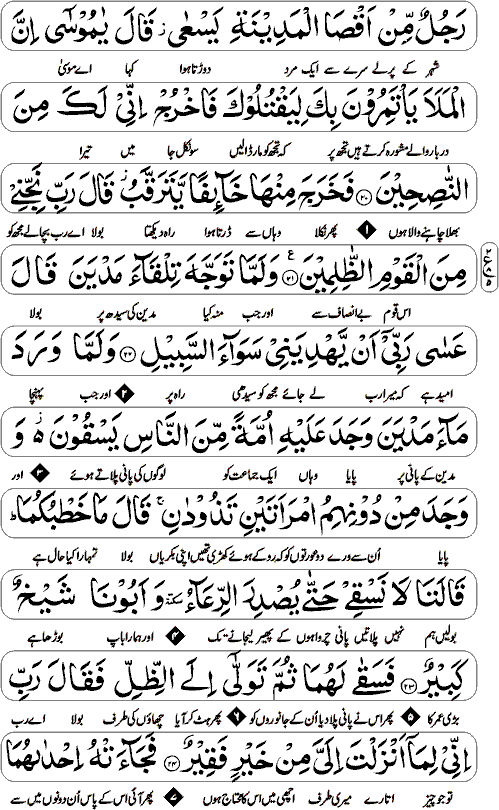 رَجُلٌ مِّنْ اَقْصَا الْمَدِيْنَةِ يَسْعٰى ز قَالَ يٰمُوْسٰٓى اِنَّ
شہر کے پرلے سرے سے ایک مرد دوڑتا ہوا کہا اے موسیٰ
الْمَلَاَ يَاْتَمِرُوْنَ بِكَ لِيَقْتُلُوْكَ فَاخْرُجْ اِنِّيْ لَكَ مِنَ
دربار والے مشورہ کرتے ہیں تجھ پر کہ تجھ کو مار ڈالیں سو نکل جا میں تیرا
النّٰصِحِيْنَ ۲۰ فَخَرَجَ مِنْهَا خَآئِفًا يَّتَرَقَّبُ ز قَالَ رَبِّ نَجِّنِيْ
بھلا چاہنے والا ہوں ۱ پھر نکلا وہاں سے ڈرتا ہوا راہ دیکھتا بولا اے رب بچا لے مجھ کو
مِنَ الْقَوْمِ الظّٰلِمِيْنَ ۲۱ ع وَلَمَّا تَوَجَّهَ تِلْقَآءَ مَدْيَنَ قَالَ
اس قوم بے انصاف سے اور جب منہ کیا مدین کی سیدھ پر بولا
عَسٰى رَبِّيْٓ اَنْ يَّهْدِيَنِيْ سَوَآءَ السَّبِيْلِ ۲۲ وَلَمَّا وَرَدَ
امید ہے کہ میرا رب لے جائے مجھ کو سیدھی راہ پر ۲ اور جب پہنچا
مَآءَ مَدْيَنَ وَجَدَ عَلَيْهِ اُمَّةً مِّنَ النَّاسِ يَسْقُوْنَ ە ز وَ
مدین کے پانی پر پایا وہاں ایک جماعت کو لوگوں کی پانی پلاتے ہوئے ۳ اور
وَجَدَ مِنْ دُوْنِهِمُ امْرَاَتَيْنِ تَذُوْدٰنِ ج قَالَ مَا خَطْبُكُمَا ط
پایا اُن سے ورے دو عورتوں کو کہ روکے ہوئے کھڑی تھیں اپنی بکریاں بولا تمہارا کیا حال ہے
قَالَتَا لَا نَسْقِيْ حَتّٰى يُصْدِرَ الرِّعَآءُ سكتة وَ اَبُوْنَا شَيْخٌ
بولیں ہم نہیں پلاتیں پانی چرواہوں کے پھیر لیجانے تک ۴ اور ہمارا باپ بوڑھا ہے
كَبِيْرٌ ۲۳ فَسَقٰى لَهُمَا ثُمَّ تَوَلّٰٓى اِلَى الظِّلِّ فَقَالَ رَبِّ
بڑی عمر کا ۵ پھر اس نے پانی پلا دیا اُن کے جانوروں کو ۶ پھر ہٹ کر آیا چھاؤں کی طرف بولا اے رب
اِنِّيْ لِمَآ اَنْزَلْتَ اِلَيَّ مِنْ خَيْرٍ فَقِيْرٌ ۲۴ فَجَآءَتْهُ اِحْدٰىهُمَا
تو جو چیز اتارے میری طرف اچھی میں اس کا محتاج ہوں ۷ پھر آئی اس کے پاس اُن دونوں میں سے